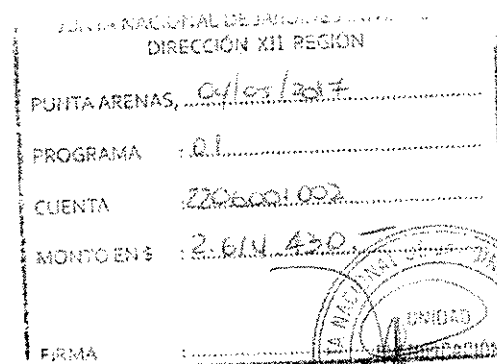 JUNTA NACIONAL DE JARDINES
DIRECCIÓN XII REGIÓN
PUNTA ARENAS, 04/05/2017
PROGRAMA : 01
CUENTA : 2206001002
MONTO EN $ : 2.614.430.-
FIRMA :
UNIDAD